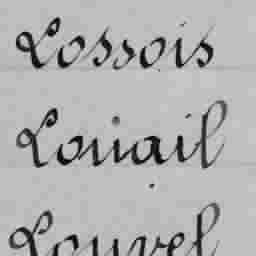 Lossois
Louail
Louvel